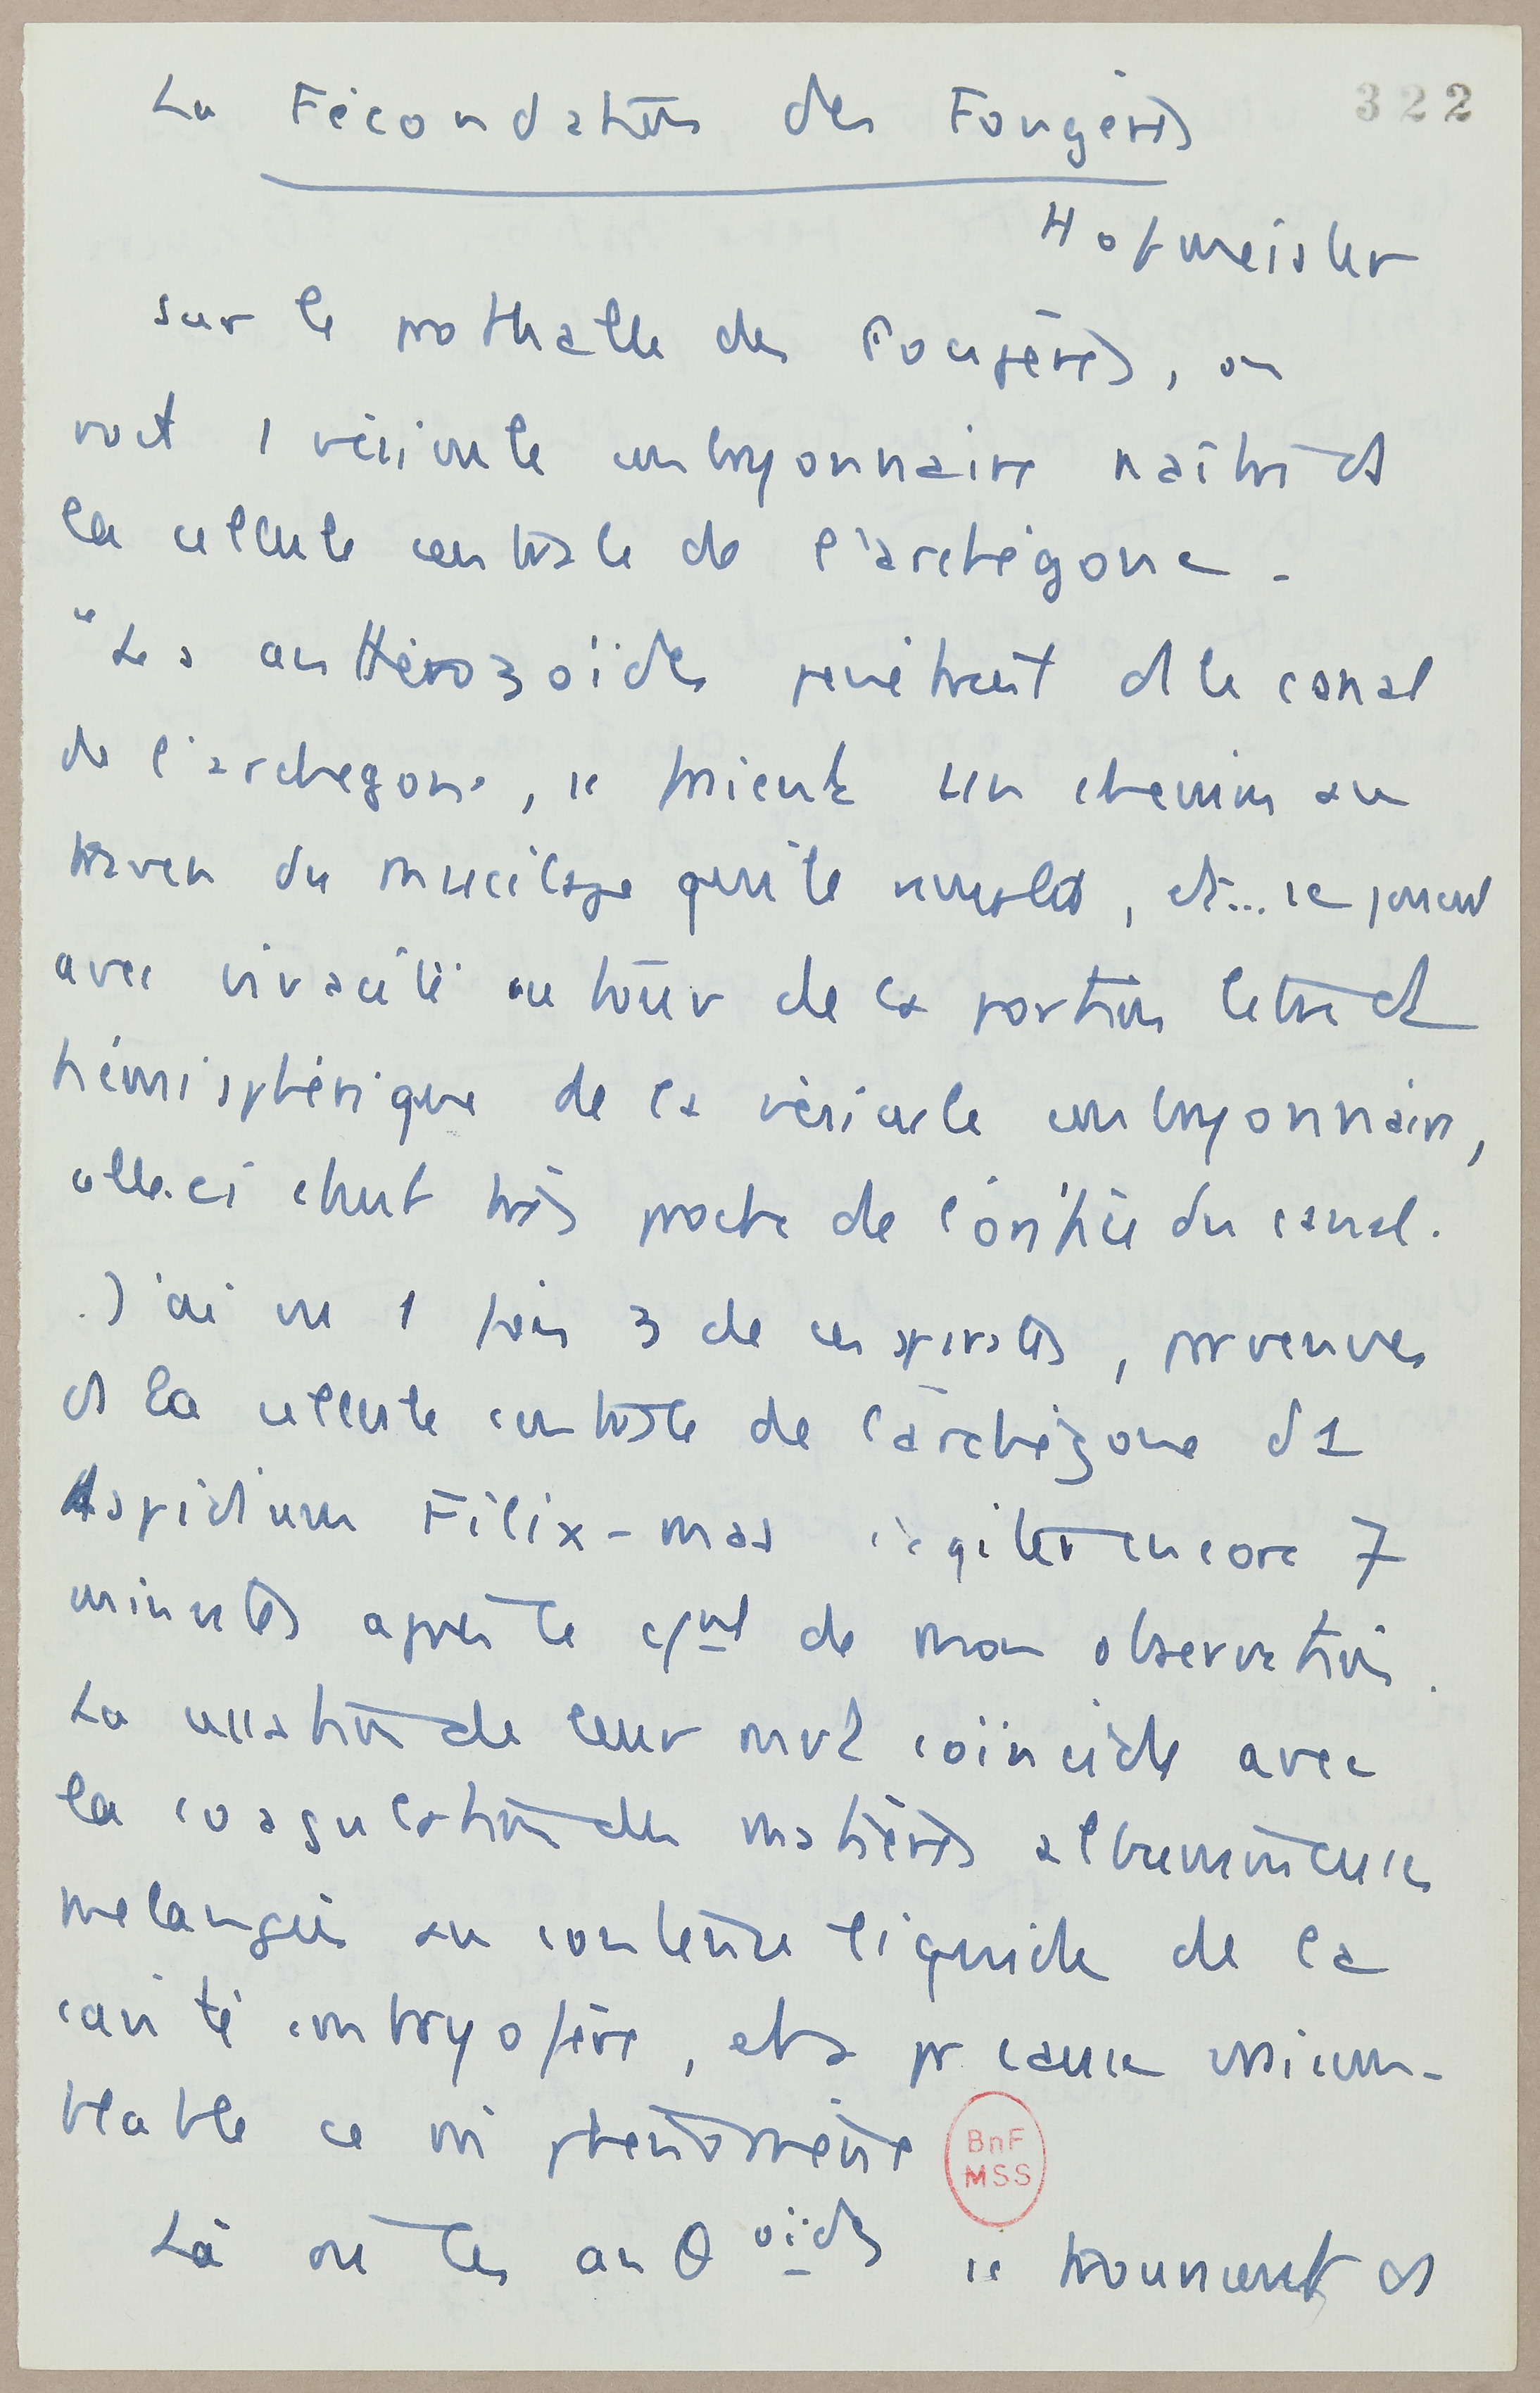 La Fécondation des Fougères
322
Hofmeister
sur le prothalle des Fougères, on
voit 1 vésicule embryonnaire naître ds
la cellule centrale de l'archégone.
"Les anthérozoïdes pénètrent ds le canal
de l'archégone, se frient un chemin au
travers du mucilage qui le remplit, et... se
avec vivacité autour de la portion
hémisphérique de la vésicule embryonnaire,
celle-ci étant très proche de l'orifice du canal.
J'ai vu 1 fois 3 de ces spirales, parvenues
ds la cellule centrale de l'archégone d1
Aspidium Filix-mas s'agiter encore 7
minutes après le de mon observation.
La cessation de leur mvt coïncide avec
la coagulation des matières albumineuses
mélangées au contenu liquide de la
cavité embryofère, et a pr cause vraisem-
blable ce mi phénomène
BnF
MSS
Là où les anθoïdes se trouvent ds